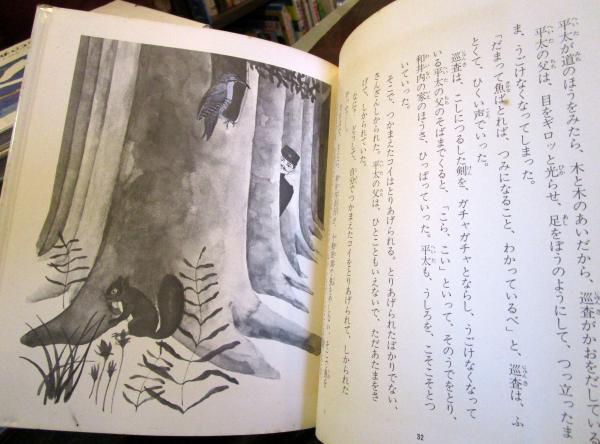 平太が道のほうをみたら、木と木のあいだから、巡査がかおをだしている
平太の父は、目をギロッと光らせ、足をぼうのようにして、つっ立ったま
ま、うごけなくなってしまった。
「だまって魚はとれば、つみになること、わかっているべ」と、巡査は、ふ
とくて、ひくい声でいった。
巡査は、こしにつるした剣を、ガチャガチャとならし、うごけなくなって
いる平太の父のそばまでくると、「こら、こい」といって、そのうでをとり、
和井内の家のほうさ、ひっぱっていった。平太も、うしろを、こそこそとつ
いていった。
そこで、つかまえたコイはとりあげられる。とりあげられたばかりでない、
さんざんしかられた。平太の父は、ひとこともいえないで、ただあたまをさ
げて、しかられていた。
つかまえたコイをとりあげられて、しかられた
32